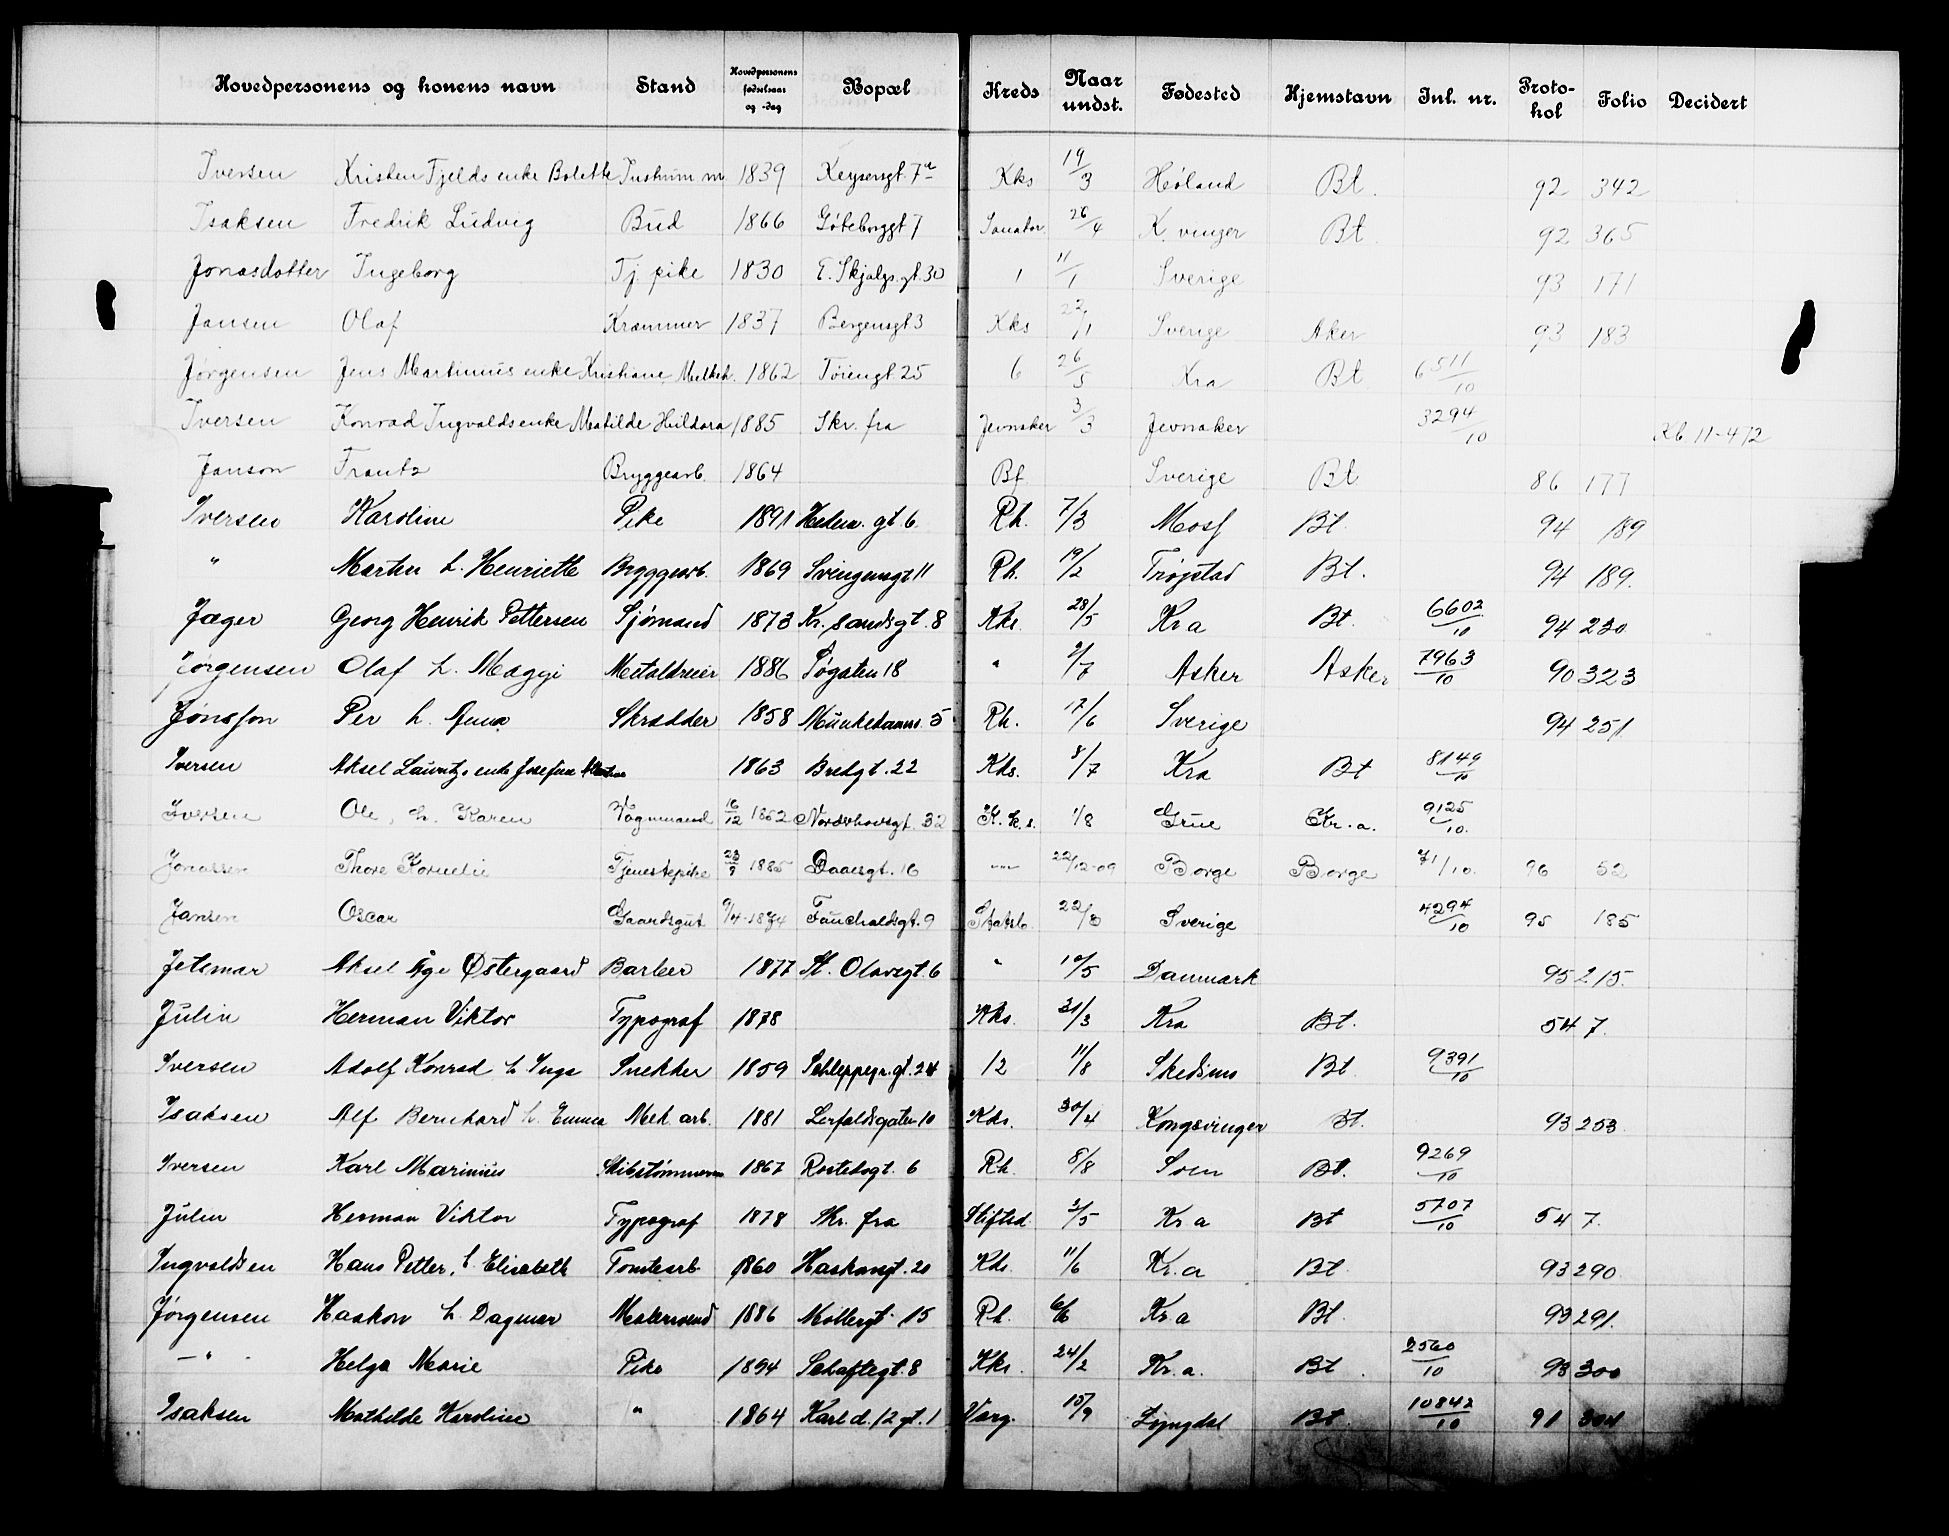 Hovedpersonens og konens navn Stand Hovedpersonens fødselsaar og -dag Bopæl Kreds Naar undst. Fødested Hjemstavn Inl. nr. Protokol Folio Decidert
Iversen Kristen Fjelds enke Bolette Instrum m 1839 Keysersgt. 7a Kks 19/3 Høland Bt. 92 342
Isaksen Fredrik Ludvig Bud 1866 Göteborggt 7 Sanator. 26/4 K. vinger Bt 92 365
Jonasdotter Ingeborg Tj. pike 1830 E. Skjalgs. gt. 30 1 11/1 Sverige 93 171
Jansen Olaf Kræmmer 1837 Bergensgt 3 Kks 22/1 Sverige Aker 93 183
Jørgensen Jens Martinius enke Kristiane Melkeh. 1862 Tøiengt. 25 6 26/5 Kra Bt 6511/10
Iversen Konrad Ingvalds enke Matilde Huldara 1885 Skr. fra Jevnaker 3/3 Jevnaker 3294/10 Kb 11-472
Janson Frantz Bryggearb. 1864 Bf Sverige Bt 86 177
Iversen Karoline Pike 1891 Helen. gt. 6 Rh. 7/3 Moss Bt. 94 189
" Martin h. Henriette Bryggearb. 1869 Svingensgt 11 Rh. 19/2 Trøgstad Bt. 94 189.
Jæger Georg Henrik Pettersen Sjømand 1873 Kr. sandsgt. 8 Kks. 28/5 Kra Bt. 6602/10 94 230
Jørgensen Olaf h. Maggi Metaldreier 1886 Søgaten 18 " 2/7 Asker Asker 7963/10 90 323
Jønsson Per h. Anna Skrædder 1858 Munkedamsv. 5 Rh. 17/6 Sverige 94 251
Iversen Aksel Lauritz enke Josefine 1863 Bredgt. 22 Kks. 8/7 Kra Bt 8149/10
Iversen Ole, h. Karen Vognmand 16/12 1852 Nordrehovsgt. 32 K.k.s. 1/8 Grue Kr.a. 9125/10.
Jonassen Thore Kornelie Tjenestepike 23/9 1885 Daaesgt. 16 — 22/12-09 Borge Borge 71/10. 96 52
Jansen Oscar Gaardsgut 9/4-1874 Fauchaldsgt. 9 Statsb. 22/3 Sverige 4294/10 95 185
Jetsmar Aksel Åge Østergaard Barber 1877 St. Olavsgt 6 " 10/5 Danmark 95 215.
Julin Herman Viktor Typograf 1878 Kks. 31/3 Kra Bt. 54 7.
Iversen Adolf Konrad h Inga Snekker 1859 Schleppegr. gt. 24 12 11/8 Skedsmo Bt. 9391/10
Isaksen Alf Bernhard h. Emma Mek. arb. 1881 Lerfaldsgaten 10 Kks. 30/4 Kongsvinger Bt. 93 253
Iversen Karl Marinius Skibstømmerm 1867 Rostedsgt. 6 Rh. 8/8 Soen Bt. 9269/10
Julin Herman Viktor Typograf 1878 Skr. fra Stiftsd 3/5 Kra Bt 5707/10 54 7.
Ingvaldsen Hans Petter, h. Elisabeth Tomtearb 1860 Haakonsgt. 20 Kks. 11/6 Kr.a Bt. 93 290
Jørgensen Haakon h. Dagmar Malersvend 1886 Møllergt. 15 Rh. 6/6 Kr.a Bt. 93 291.
—"— Helga Marie Pike 1894 Schaftegt. 8 Kks. 24/2 Kr.a. Bt. 2560/10 93 300
Isaksen Mathilde Karoline " 1864 Karl d. 12 gt. 1 Varg. 15/9 Lyngdal Bt. 10842/10 91 304